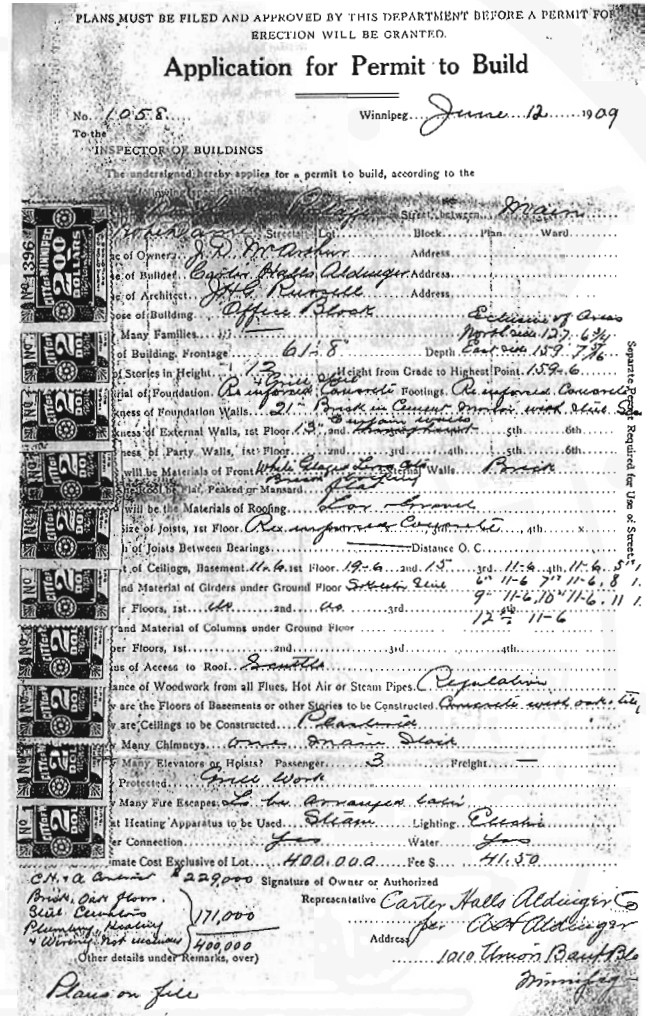 PLANS MUST BE FILED AND APPROVED BY THIS DEPARTMENT BEFORE A PERMIT FOR
ERECTION WILL BE GRANTED.
Application for Permit to Build
No. 1058 Winnipeg, June 12 1909
To the
INSPECTOR OF BUILDINGS
The undersigned hereby applies for a permit to build, according to the
following specifications
Street, between Main
Street Lot Block Plan Ward
e of Owner J. D. McArthur Address
e of Builder Carter Halls Aldinger Address
e of Architect J.H.G. Russell Address
ose of Building Office Block Exclusive of Areas
Many Families? — North side 127-6 3/4
of Building, Frontage 61-8" Depth East side 159-7
of Stories in Height 12 Height from Grade to Highest Point 159-6
rial of Foundation Reinforced Concrete Footings Reinforced Concrete
kness of Foundation Walls 21" Brick in Cement Mortar with Steel
kness of External Walls, 1st Floor 13" 2nd Curtain walls 5th 6th
ness of Party Walls, 1st Floor 2nd 3rd 4th 5th 6th
will be Materials of Front White Glazed Terra Cotta External Walls Brick
the Roof be Flat, Peaked or Mansard flat
will be the Materials of Roofing Tar & Gravel
Size of Joists, 1st Floor Reinforced Concrete 3rd 4th x
h of Joists Between Bearings Distance O. C.
t of Ceilings, Basement 11-6 1st Floor 19-6 2nd 15 3rd 11-6 4th 11-6 5th 1
and Material of Girders under Ground Floor Steel 6th 11-6 7th 11-6, 8 1
r Floors, 1st do 2nd do 3rd 9th 11-6, 10th 11-6, 11 1
12th 11-6
and Material of Columns under Ground Floor
per Floors, 1st 2nd 3rd 4th
ns of Access to Roof Scuttle
ance of Woodwork from all Flues, Hot Air or Steam Pipes Regulation
w are the Floors of Basements or other Stories to be Constructed Concrete with oak & tile
w are Ceilings to be Constructed Plastered
w Many Chimneys one main stack
w Many Elevators or Hoists? Passenger 3 Freight —
Protected Grill Work
w Many Fire Escapes To be arranged later
t Heating Apparatus to be Used Steam Lighting Electric
er Connection Yes Water Yes
imate Cost Exclusive of Lot 400.000 Fee $ 41.50
C.H. & A Contract $229,000 Signature of Owner or Authorized
Brick, Oak floors Representative Carter Halls Aldinger Co
Plumbing, Heating 171,000 per A H Aldinger
& Wiring not included 400,000 Address
Other details under Remarks, over) 1010 Union Bank Bl
Winnipeg
Plans on file
Separate Permit Required for Use of Street.
No. 1396
CITY OF WINNIPEG
200
DOLLARS